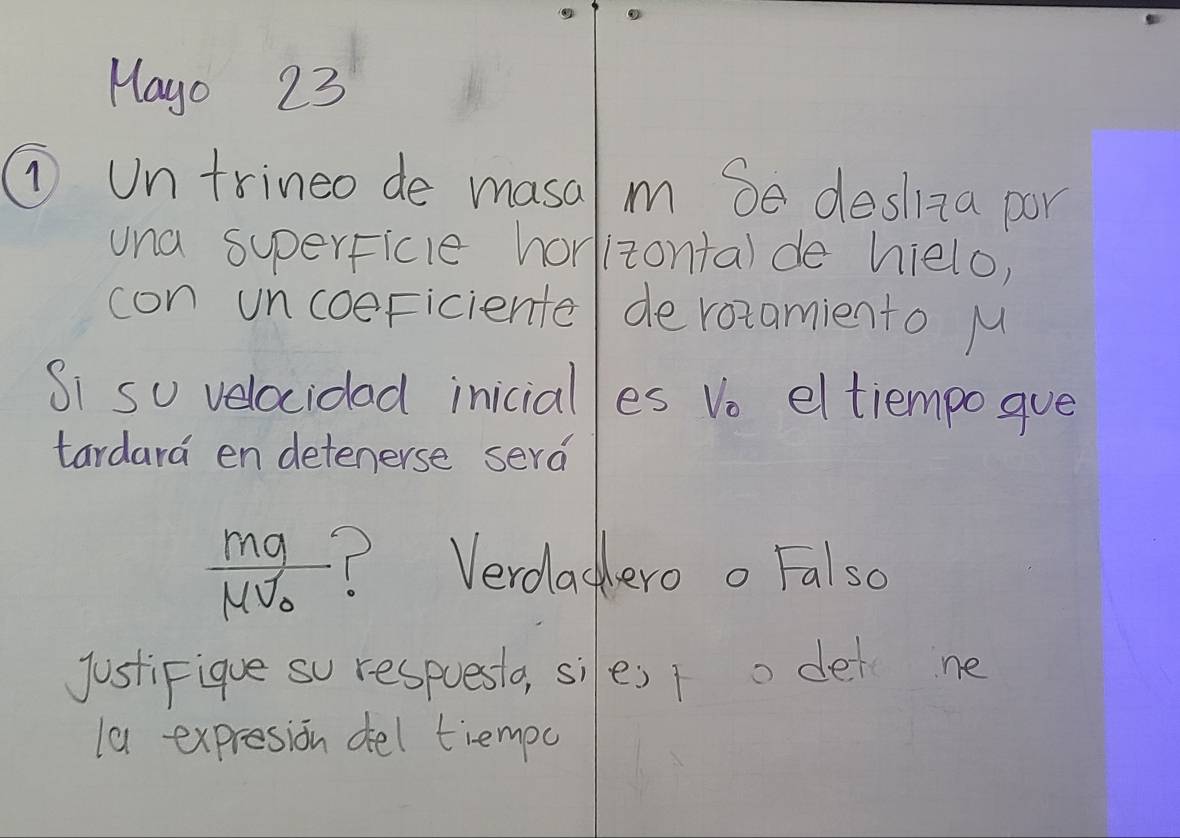 Mayo 23
① Un trineo de masa m Se desliza por
una superficie horizontal de hielo,
con un coeficiente de rozamiento μ
Si su velocidad inicial es V₀ el tiempo que
tardará en detenerse será
mg/μV₀ ? Verdadero o Falso
Justifique su respuesta, si es o
la expresión del tiempo